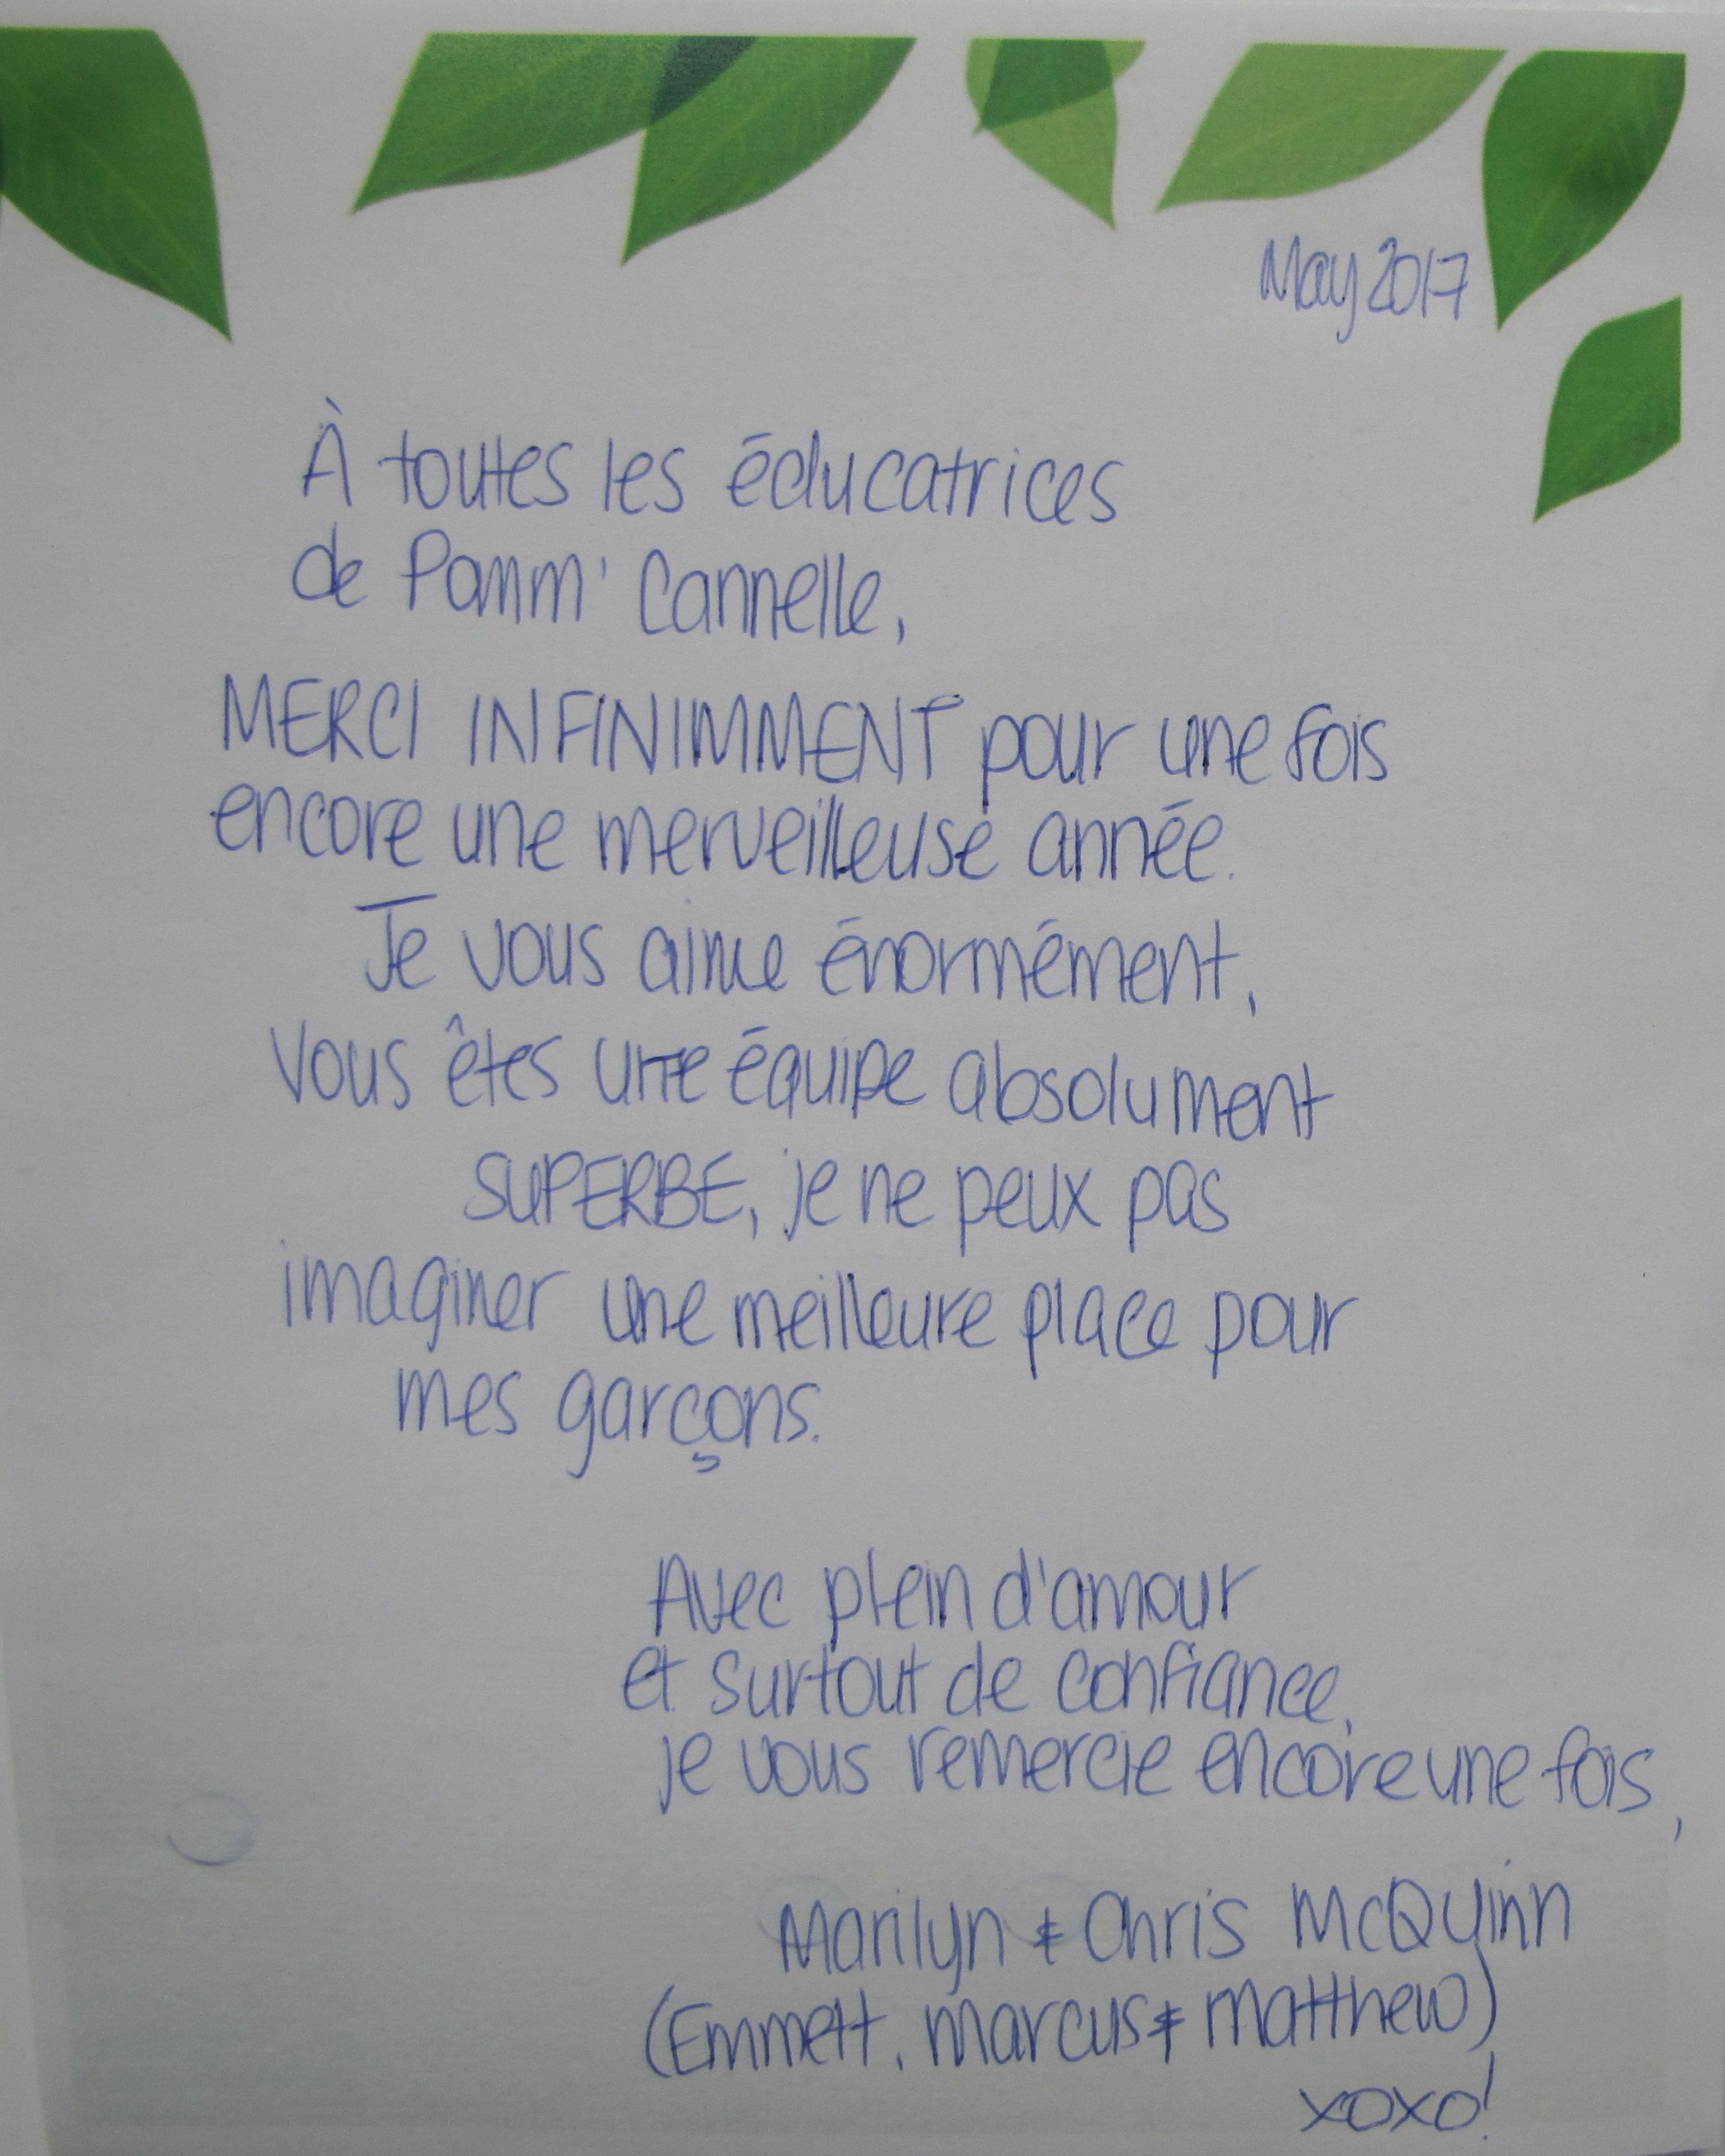 May 2017
À toutes les éducatrices
de Pamm' Cannelle,
MERCI INFINIMMENT pour une fois
encore une merveilleuse année.
Je vous aime énormément,
Vous êtes une équipe absolument
SUPERBE, je ne peux pas
imaginer une meilleure place pour
mes garçons.
Avec plein d'amour
et surtout de confiance,
je vous remercie encore une fois,
Marilyn & Chris McQuinn
(Emmett, Marcus & Matthew)
xoxo!